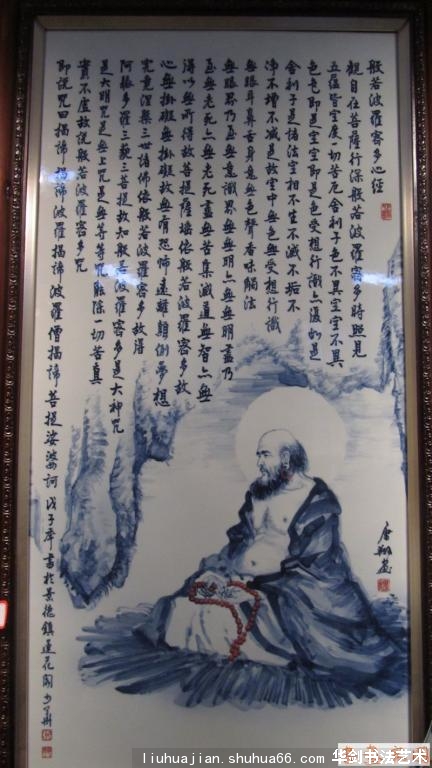 般若波羅密多心經
觀自在菩薩行深般若波羅密多時照見
五蘊皆空度一切苦厄舍利子色不異空空不異
色色即是空空即是色受想行識亦復如是
舍利子是諸法空相不生不滅不垢不
淨不增不減是故空中無色無受想行識
無眼耳鼻舌身意無色聲香味觸法
無眼界乃至無意識界無無明亦無無明盡乃
至無老死亦無老死盡無苦集滅道無智亦無
得以無所得故菩提薩埵依般若波羅密多故
心無掛礙無掛礙故無有恐怖遠離顛倒夢想
究竟涅槃三世諸佛依般若波羅密多故得
阿耨多羅三藐三菩提故知般若波羅密多是大神咒
是大明咒是無上咒是無等等咒能除一切苦真
實不虛故說般若波羅密多咒
即說咒曰揭諦揭諦波羅揭諦波羅僧揭諦菩提娑婆訶 戊子年書於景德鎮蓮花閣少
liuhuajian.shuhua66.com 华剑书法艺术